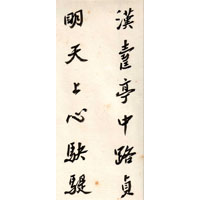 漢臺亭中路貞
明天上心駃騠